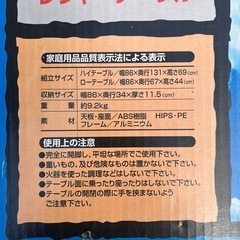 家庭用品品質表示法による表示
組立サイズ ハイテーブル/幅86×奥行131×高さ69(cm)
ローテーブル/幅86×奥行67×高さ44(cm)
収納サイズ 幅86×奥行34×厚さ11.5(cm)
重量 約9.2kg
素材 天板・座面/ABS樹脂 HIPS・PE
フレーム/アルミニウム
使用上の注意
●完全に開脚し、平坦な場所でご使用下さい。
●重いもの、及び危険なものは置かないで下さい。
●火器を使った調理などはしないで下さい。
●テーブル面に乗ったり座ったりはしないで下さい。
●テーブルの開閉の際に手を挟まないよう
ご注意下さい。